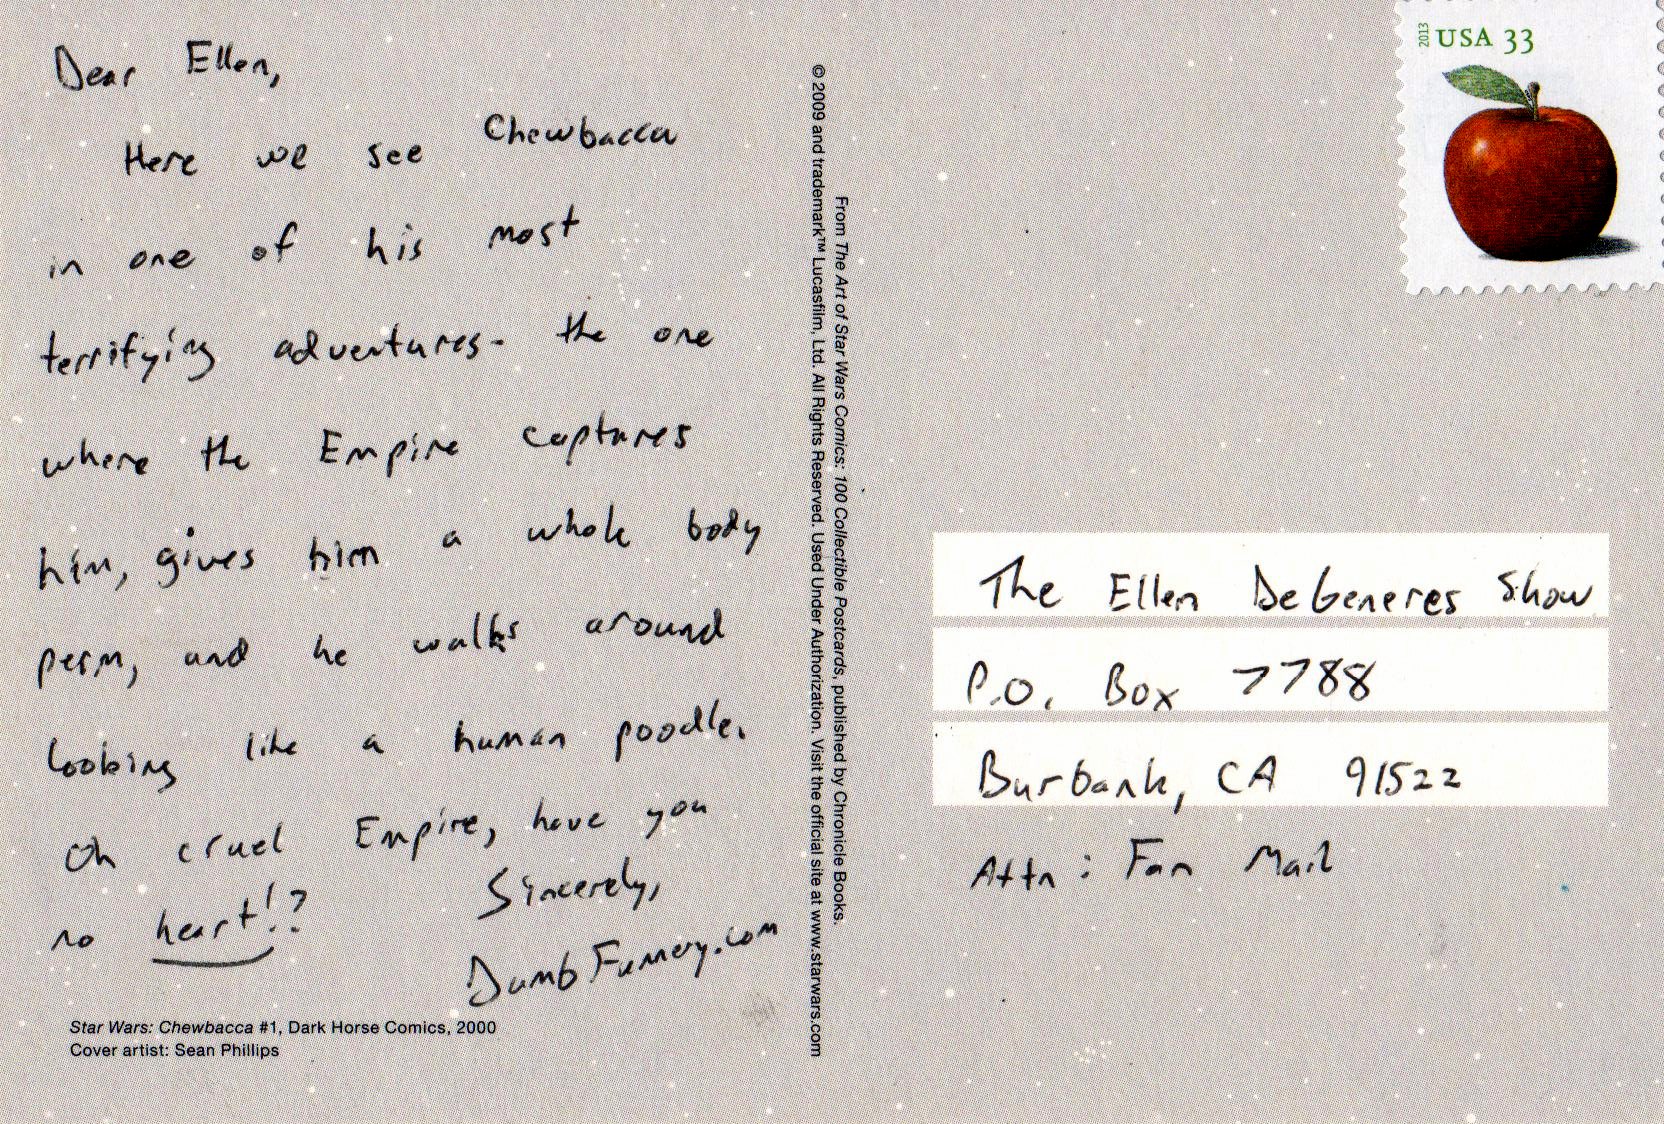 Dear Ellen,
Here we see Chewbacca
in one of his most
terrifying adventures- the one
where the Empire captures
him, gives him a whole body
perm, and he walks around
looking like a human poodle.
Oh cruel Empire, have you
no heart!?
Sincerely,
DumbFunnery.com
Star Wars: Chewbacca #1, Dark Horse Comics, 2000
Cover artist: Sean Phillips
From The Art of Star Wars Comics: 100 Collectible Postcards, published by Chronicle Books.
© 2009 and trademark™ Lucasfilm, Ltd. All Rights Reserved. Used Under Authorization. Visit the official site at www.starwars.com
2013
USA 33
The Ellen DeGeneres Show
P.O. Box 7788
Burbank, CA 91522
Attn: Fan Mail